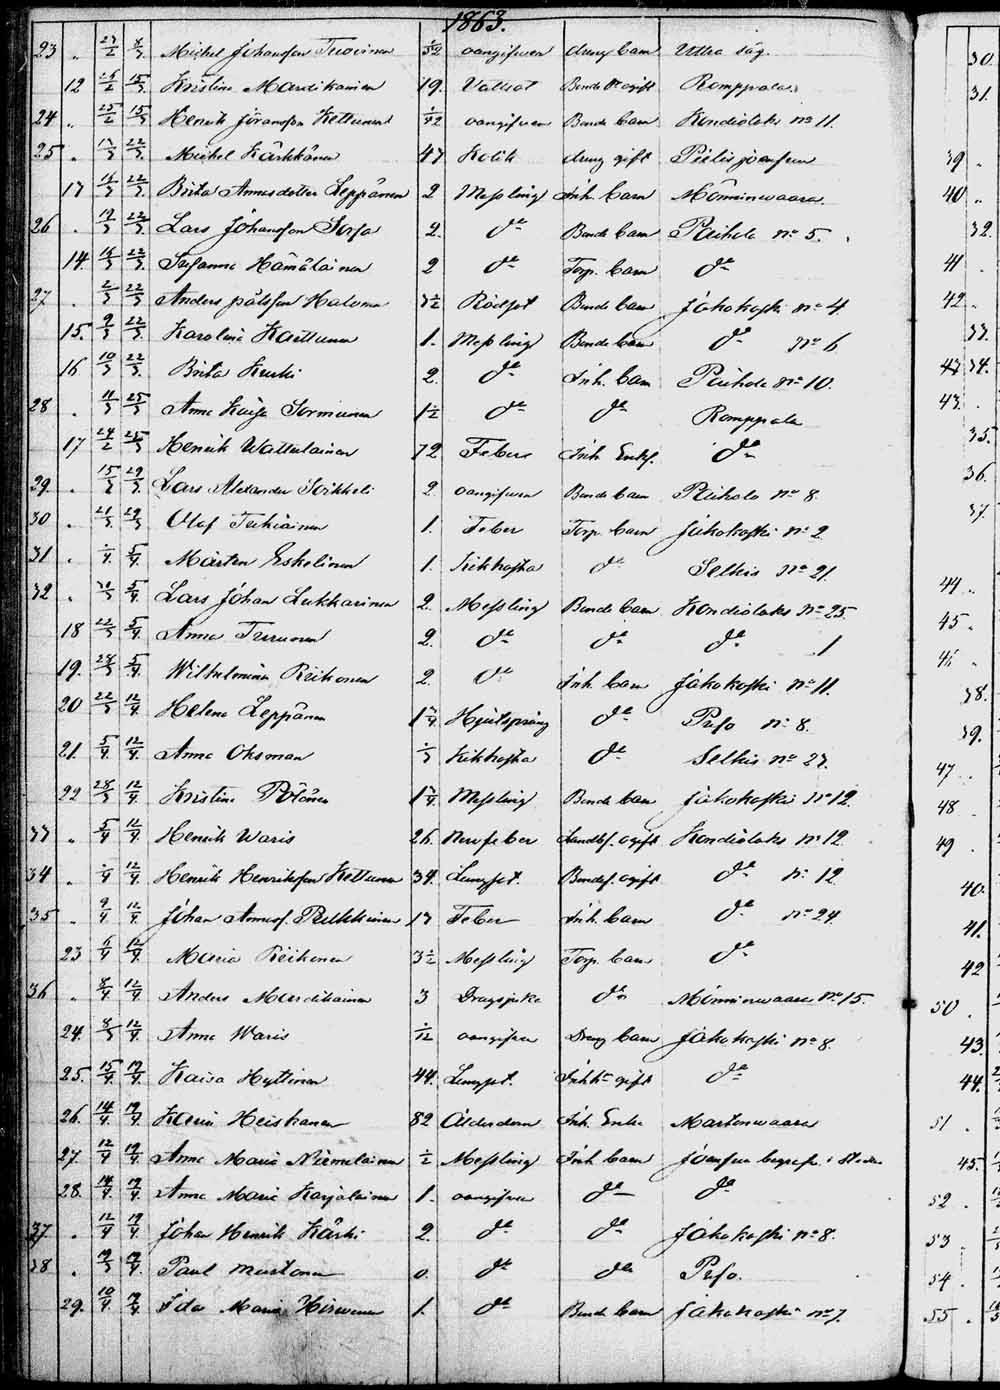 1863.
23 " 27/2 8/3 Michel Johansson Tuovinen 5/12 oangifwen dreng barn Utra såg.
12 25/2 15/3 Kristina Mardikainen 19. Vattsot Bonde gift Romppala
24 " 25/2 15/3 Henrik Göransson Kettunen 1/12 oangifwen Bonde barn Kondiolaks no 11.
25 " 22/3 Michel Kärkkänen 47 Kolik dreng gift Pielis josensuu
13 22/3 Brita Annasdotter Leppänen 2 Messling Inh. barn Mönninwaara.
26 " 22/3 Lars Johansson Sorsa 2. do Bonde barn Paihola no 5.
14. 22/3 Susanna Hämäläinen 2 do Torp. barn do
27 " 2/3 22/3 Anders Pålsson Halonen 3 1/2 Rödsot Bonde barn Jakokoski no 4
15. 9/3 22/3 Karolina Karttunen 1. Messling Bonde barn do no 6
16 10/3 22/3 Brita Kurki 2. do Inh. barn Paihola no 10.
28 " 11/3 25/3 Anna Kaisa Sormunen 1 1/2 do do Romppala
17 24/2 25/3 Henrik Wattulainen 72 Feber Inh. Enkl. do
29. " 15/3 29/3 Lars Alexander Soikkeli 2. oangifwen Bonde barn Paihola no 8.
30 " 21/3 29/3 Olof Turkiainen 1. Feber Torp barn Jakokoski no 2
31 " 1/4 5/4 Mårten Eskelinen 1. Kikhosta do Selkis no 21.
32 " 5/4 Lars Johan Lukkarinen 2. Messling Bonde barn Kondiolaks no 25
18 22/3 5/4 Anna Turunen 2. do do do 1
19. 28/3 5/4 Wilhelmina Reikonen 2. do Inh. barn Jakokoski no 11.
20 22/3 12/4 Helena Leppänen 1 3/4 do Puso no 8.
21. 5/4 12/4 Anna Oksman 1/3 Kikhosta do Selkis no 27.
22 28/3 12/4 Kristina Pölönen 1 3/4 Messling Bonde barn Jakokoski no 12
33 " 5/4 12/4 Henrik Waris 26. Nerffeber ogift Kondiolaks no 12
34 " 1/4 12/4 Henrik Henriksson Kettunen 34. Lungsot. Bondes. ogift do no 12
35 " 9/4 12/4 Johan Annas. 13 Feber Inh. barn do no 24
23 6/4 12/4 Maria Reikonen 3 1/2 Messling Torp. barn do
36 " 8/4 12/4 Anders Mardikainen 3 Dragsjuka do Mönninwaara no 15.
24. 8/3 12/4 Anna Waris 1/12 oangifwen Dreng barn Jakokoski no 8.
25. 15/4 19/4 Kaisa Hyttinen 44. Lungsot. gift do
26. 14/4 19/4 Karin Heiskanen 82 Ålderdom Inh. Enka Martonwaara
27. 12/4 19/4 Anna Maria Niemelainen 1/2 Messling Inh. barn Joensuu
28. 14/4 19/4 Anna Maria Karjalainen 1. oangifwen do do
37. " 12/4 19/4 Johan Henrik Kärki 2. do do Jakokoski no 8.
38 " 19/3 19/4 Paul Mustonen 0. do do Puso.
29. 10/4 19/4 Ida Maria Hirwonen 1. do Bonde barn Jakokoski no 7.
30.
31.
39 "
40 "
32.
41 "
42 "
33.
43 34.
43. "
35.
36.
37.
44 "
45 "
46 "
38.
39.
47 "
48 "
49 "
40.
41.
42
50 "
43.
44.
51 "
45.
52 "
53 "
54 "
55 "